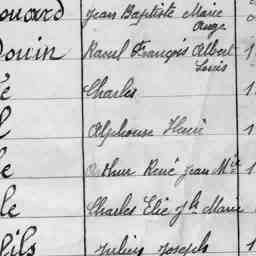 ouard Jean Baptiste Marie
Ange
Douin Raoul François Albert 1
Louis
é Charles 1
l Alphonse Henri 1
le Arthur René Jean Mie 1
le Charles Elie Jh Marie 1
fils Julien Joseph 1